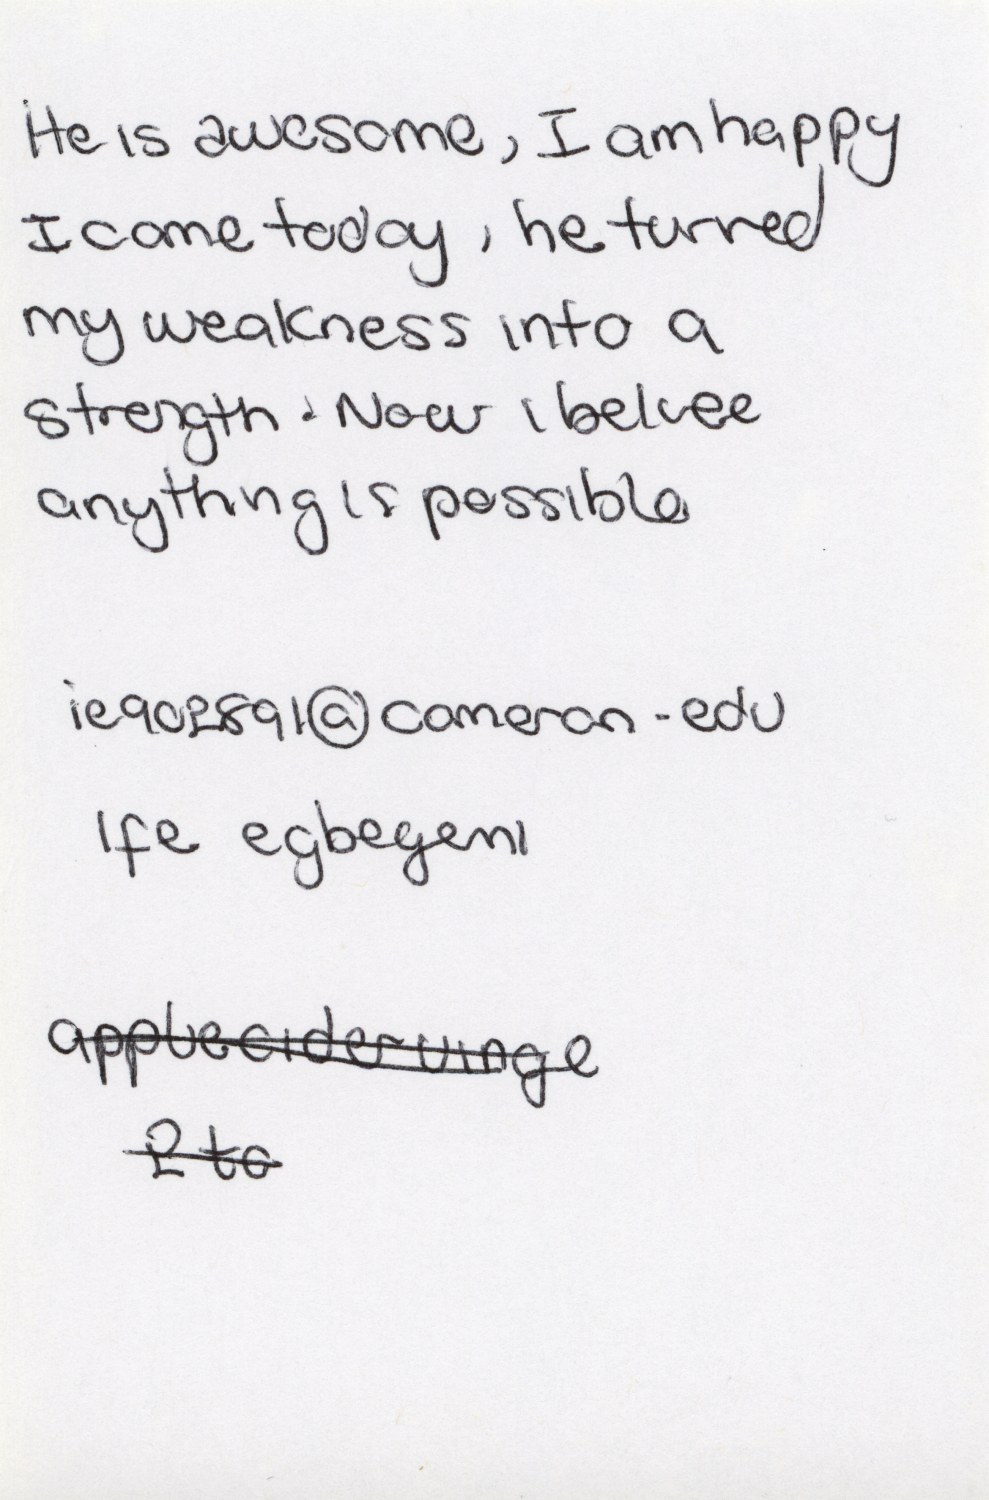 He is awesome, I am happy
I came today, he turned
my weakness into a
strength. Now i belvee
anything is possible
ie902891@cameron.edu
Ife egbeyemi
applecidervinge
2 to